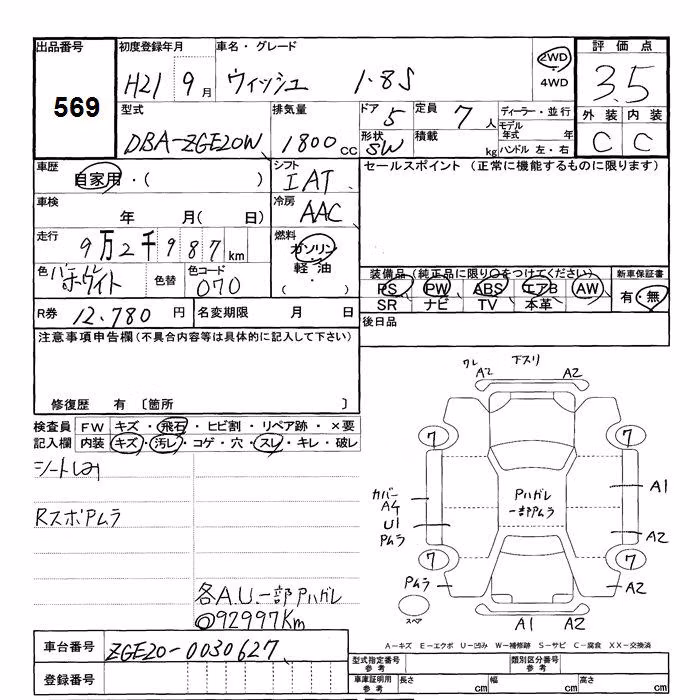 出品番号 初度登録年月 車名・グレード 評価点
569 H21 9月 ウィッシュ 1.8S 2WD 4WD 3.5
外装 内装
C C
型式 排気量 ドア 5 定員 7人 ディーラー・並行
DBA-ZGE20W 1800cc 形状 SW 積載 kg モデル年式 年
ハンドル 左・右
車歴 シフト セールスポイント (正常に機能するものに限ります)
自家用・( ) IAT
車検 冷房
年 月( 日) AAC
走行 燃料
9万2千987km ガソリン・軽油
( ・ )
色 パールホワイト 色替 色コード 070
装備品(純正品に限り○をつけてください) 新車保証書
PS PW ABS エアB AW 有・無
SR ナビ TV 本革
R券 12.780円 名変期限 月 日 後日品
注意事項申告欄(不具合内容等は具体的に記入して下さい)
修復歴 有 〔箇所 〕
検査員記入欄 FW キズ・飛石・ヒビ割・リペア跡・×要
内装 キズ・汚レ・コゲ・穴・スレ・キレ・破レ
シートしみ
RスポPムラ
各A.U.一部Pハガレ
◎92997Km
ワレ 下スリ
A2 A2
7 7
カバー
A4
U1
Pムラ
Pハガレ
一部Pムラ
A1
A2
7 7
Pムラ A2
スペア A1 A2
A-キズ E-エクボ U-凹み W-補修跡 S-サビ C-腐食 XX-交換済
車台番号 ZGE20-0030627
登録番号
型式指定番号 参考 類別区分番号 参考
車庫証明用 参考 長さ cm 幅 cm 高さ cm